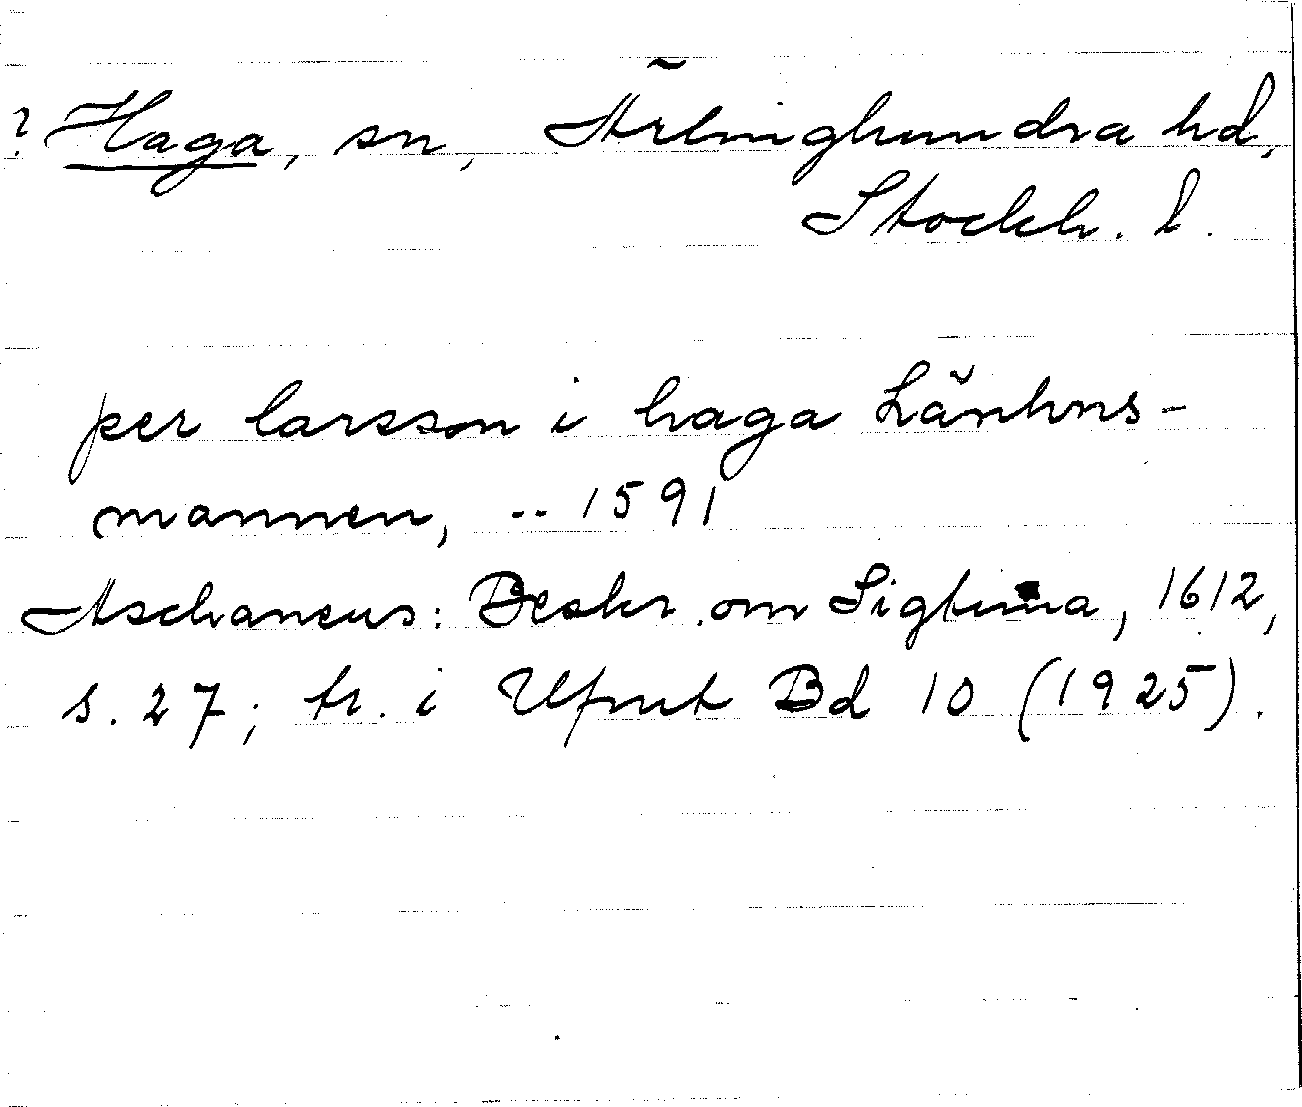 ? Haga, sn, Ärlinghundra hd,
Stockh. l.
per larsson i haga Länhns-
mannen, -- 1591
Aschaneus: Beskr. om Sigtuna, 1612,
s. 27; tr. i Ufmt Bd 10 (1925).